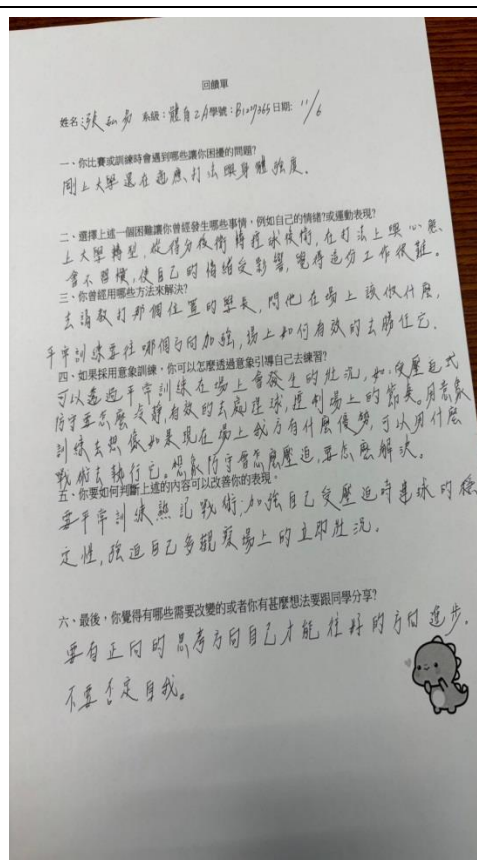 回饋單
姓名:張 系級:體育2A學號:B1207365日期: 11/6
一、你比賽或訓練時會遇到哪些讓你困擾的問題?
剛上大學還在適應打法與身體強度。
二、選擇上述一個困難讓你曾經發生哪些事情,例如自己的情緒?或運動表現?
上大學轉型,從得分後衛轉控球後衛,在打法上與心態
會不習慣,使自己的情緒受影響,覺得這份工作很難。
三、你曾經用哪些方法來解決?
去請教打那個位置的學長,問他在場上該做什麼,
平常訓練要往哪個方向加強,場上如何有效的去勝任它.
四、如果採用意象訓練,你可以怎麼透過意象引導自己去練習?
可以透過平常訓練在場上會發生的狀況,如,受壓迫式
防守並怎麼處理,有效的去處理球,控制場上的節奏。用意象
訓練去想像如果現在場上我方有什麼優勢,可以用什麼
戰術去執行它。想象防守會怎麼壓迫,要怎麼解決。
五、你要如何判斷上述的內容可以改善你的表現。
要平常訓練熟記戰術,加強自己受壓迫時運球的穩
定性,強迫自己多觀察場上的立即狀況。
六、最後,你覺得有哪些需要改變的或者你有甚麼想法要跟同學分享?
要有正向的思考方向自己才能往好的方向進步.
不要否定自我。